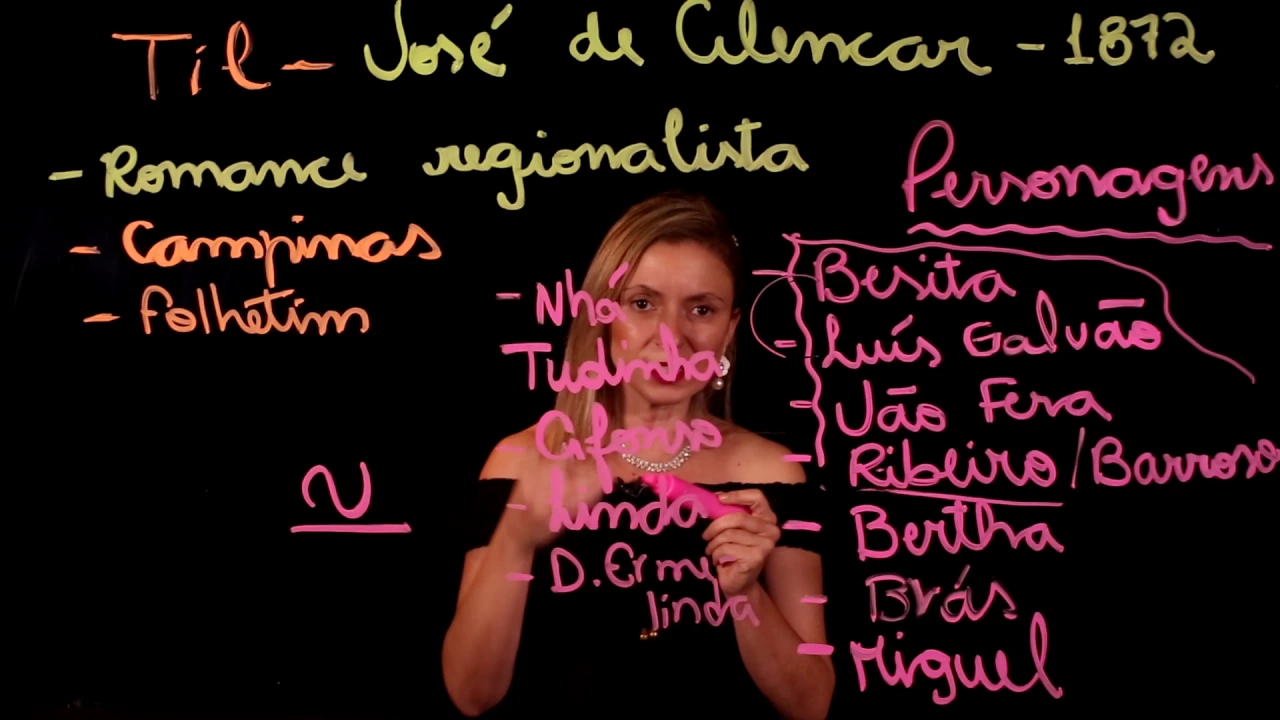 Til - José de Alencar - 1872
- Romance regionalista
- Campinas
- Folhetim
~
- Nhá
Tudinha
- Afonso
- Linda
- D. Erme
linda
Personagens
- Besita
- Luís Galvão
- Jão Fera
- Ribeiro / Barroso
- Bertha
- Brás
- Miguel